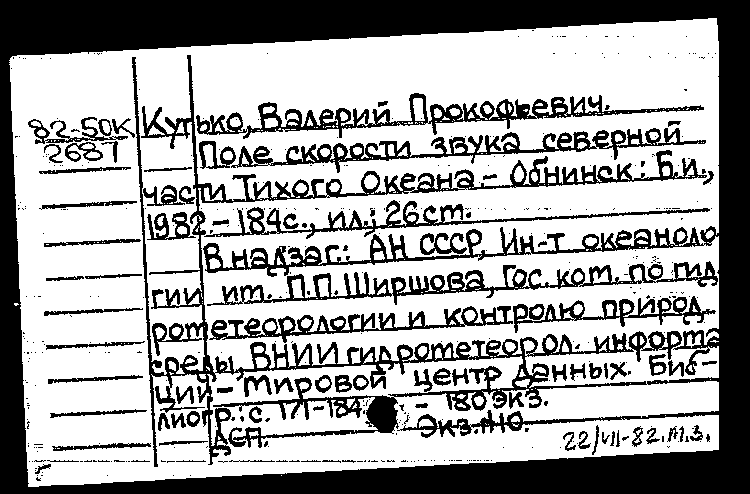 82-50К Кутько, Валерий Прокофьевич.
2687 Поле скорости звука северной
части Тихого Океана.- Обнинск: Б.и.,
1982.-184с., ил.; 26см.
В надзаг.: АН СССР, Ин-т океаноло
гии им. П.П.Ширшова, Гос. ком. по гид
рометеорологии и контролю природ.
среды, ВНИИ гидрометеорол. информа
ции.- Мировой центр данных. Биб-
лиогр.: с. 171-184 - 180 экз.
ДСП. Экз.
22/VII-82.М.З.